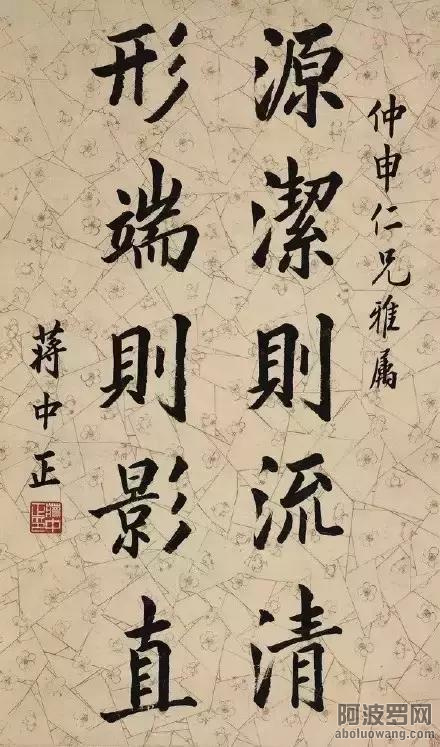 仲申仁兄雅属
源潔則流清
形端則影直
蔣中正
蔣中正
阿波罗网
aboluowang.com